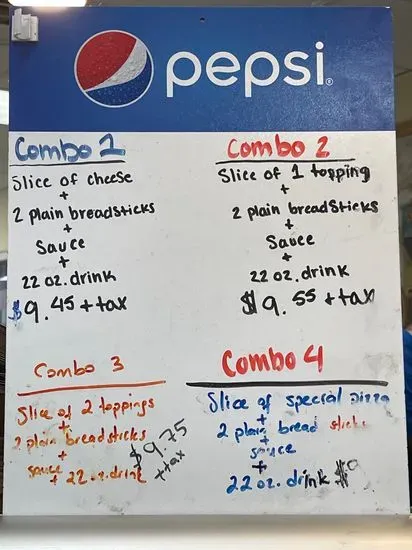 pepsi
Combo 1
Slice of cheese
+
2 plain breadsticks
+
Sauce
+
22 oz. drink
$9.45 + tax
Combo 2
Slice of 1 topping
+
2 plain breadsticks
+
Sauce
+
22 oz. drink
$9.55 + tax
Combo 3
Slice of 2 toppings
+
2 plain breadsticks
+
sauce
+ 22 oz. drink
$9.75
+ tax
Combo 4
Slice of special pizza
+
2 plain bread sticks
+
sauce
+
22 oz. drink $9